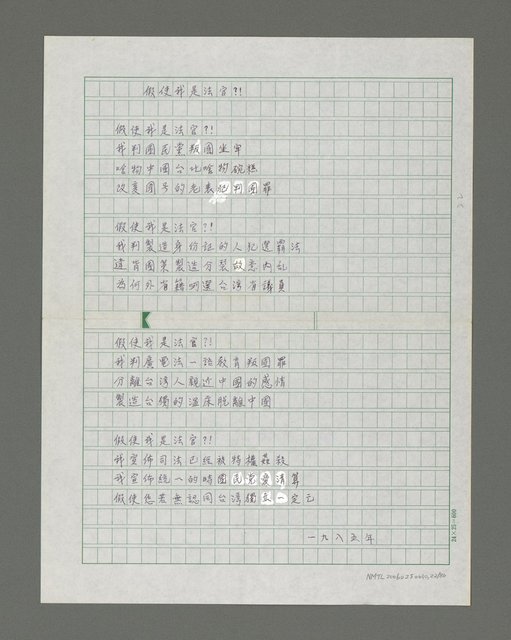 假使我是法官?!
假使我是法官?!
我判國民黨叛國坐牢
啥物中國台北啥物碗糕
改變國号的老表犯判國罪
假使我是法官?!
我判製造身份证的人犯選罷法
違背國策製造分裂故意內乱
為何外省籍哪選台湾省議員
假使我是法官?!
我判廣電法一語教育叛國罪
分離台湾人親近中國的感情
製造台獨的溫床脫離中國
假使我是法官?!
我宣佈司法已經被特權姦殺
我宣佈統一的時國民党愛清算
假使您若無認同台湾獨立一定乞
一九八五年
24×25=600